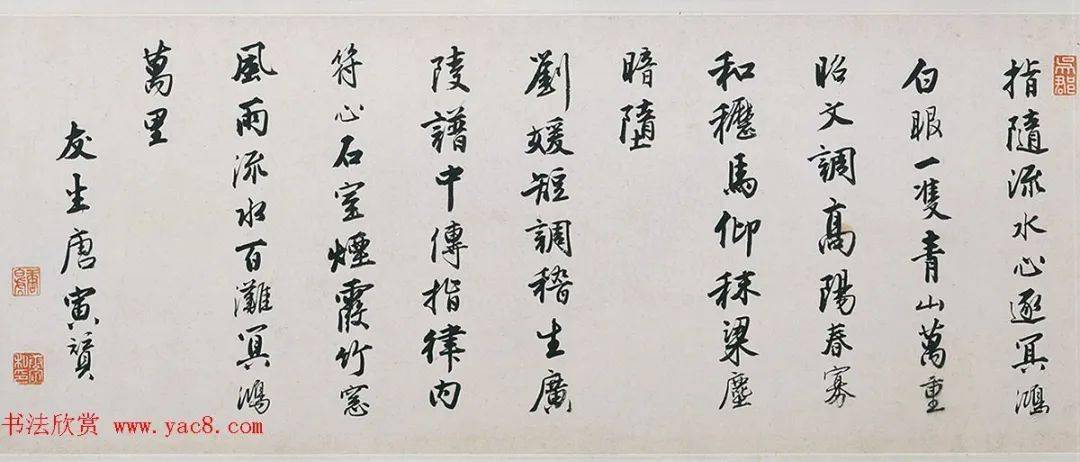 指隨流水心逐冥鴻
白眼一隻青山萬重
昭文調高陽春寡
和櫪馬仰秣梁塵
暗墮
劉媛短調嵇生廣
陵譜中傳指律内
符心石室煙霞竹窓
風雨流水百灘冥鴻
萬里
友生唐寅贊
吳郡
书法欣赏 www.yac8.com